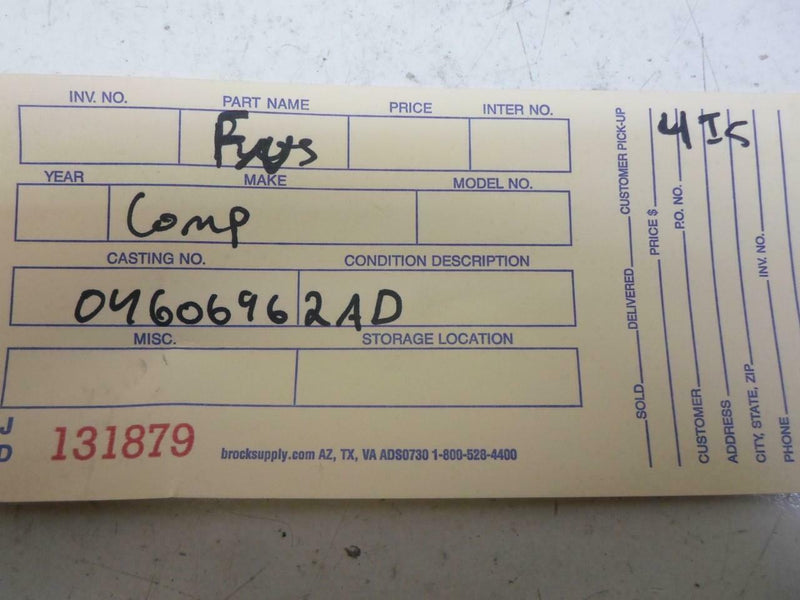 INV. NO. PART NAME PRICE INTER NO.
YEAR MAKE MODEL NO.
Comp
CASTING NO. CONDITION DESCRIPTION
04606962AD
MISC. STORAGE LOCATION
J
D
131879
brocksupply.com AZ, TX, VA ADS0730 1-800-528-4400
SOLD DELIVERED CUSTOMER PICK-UP
PRICE $
P.O. NO.
CUSTOMER
ADDRESS
CITY, STATE, ZIP INV. NO.
PHONE